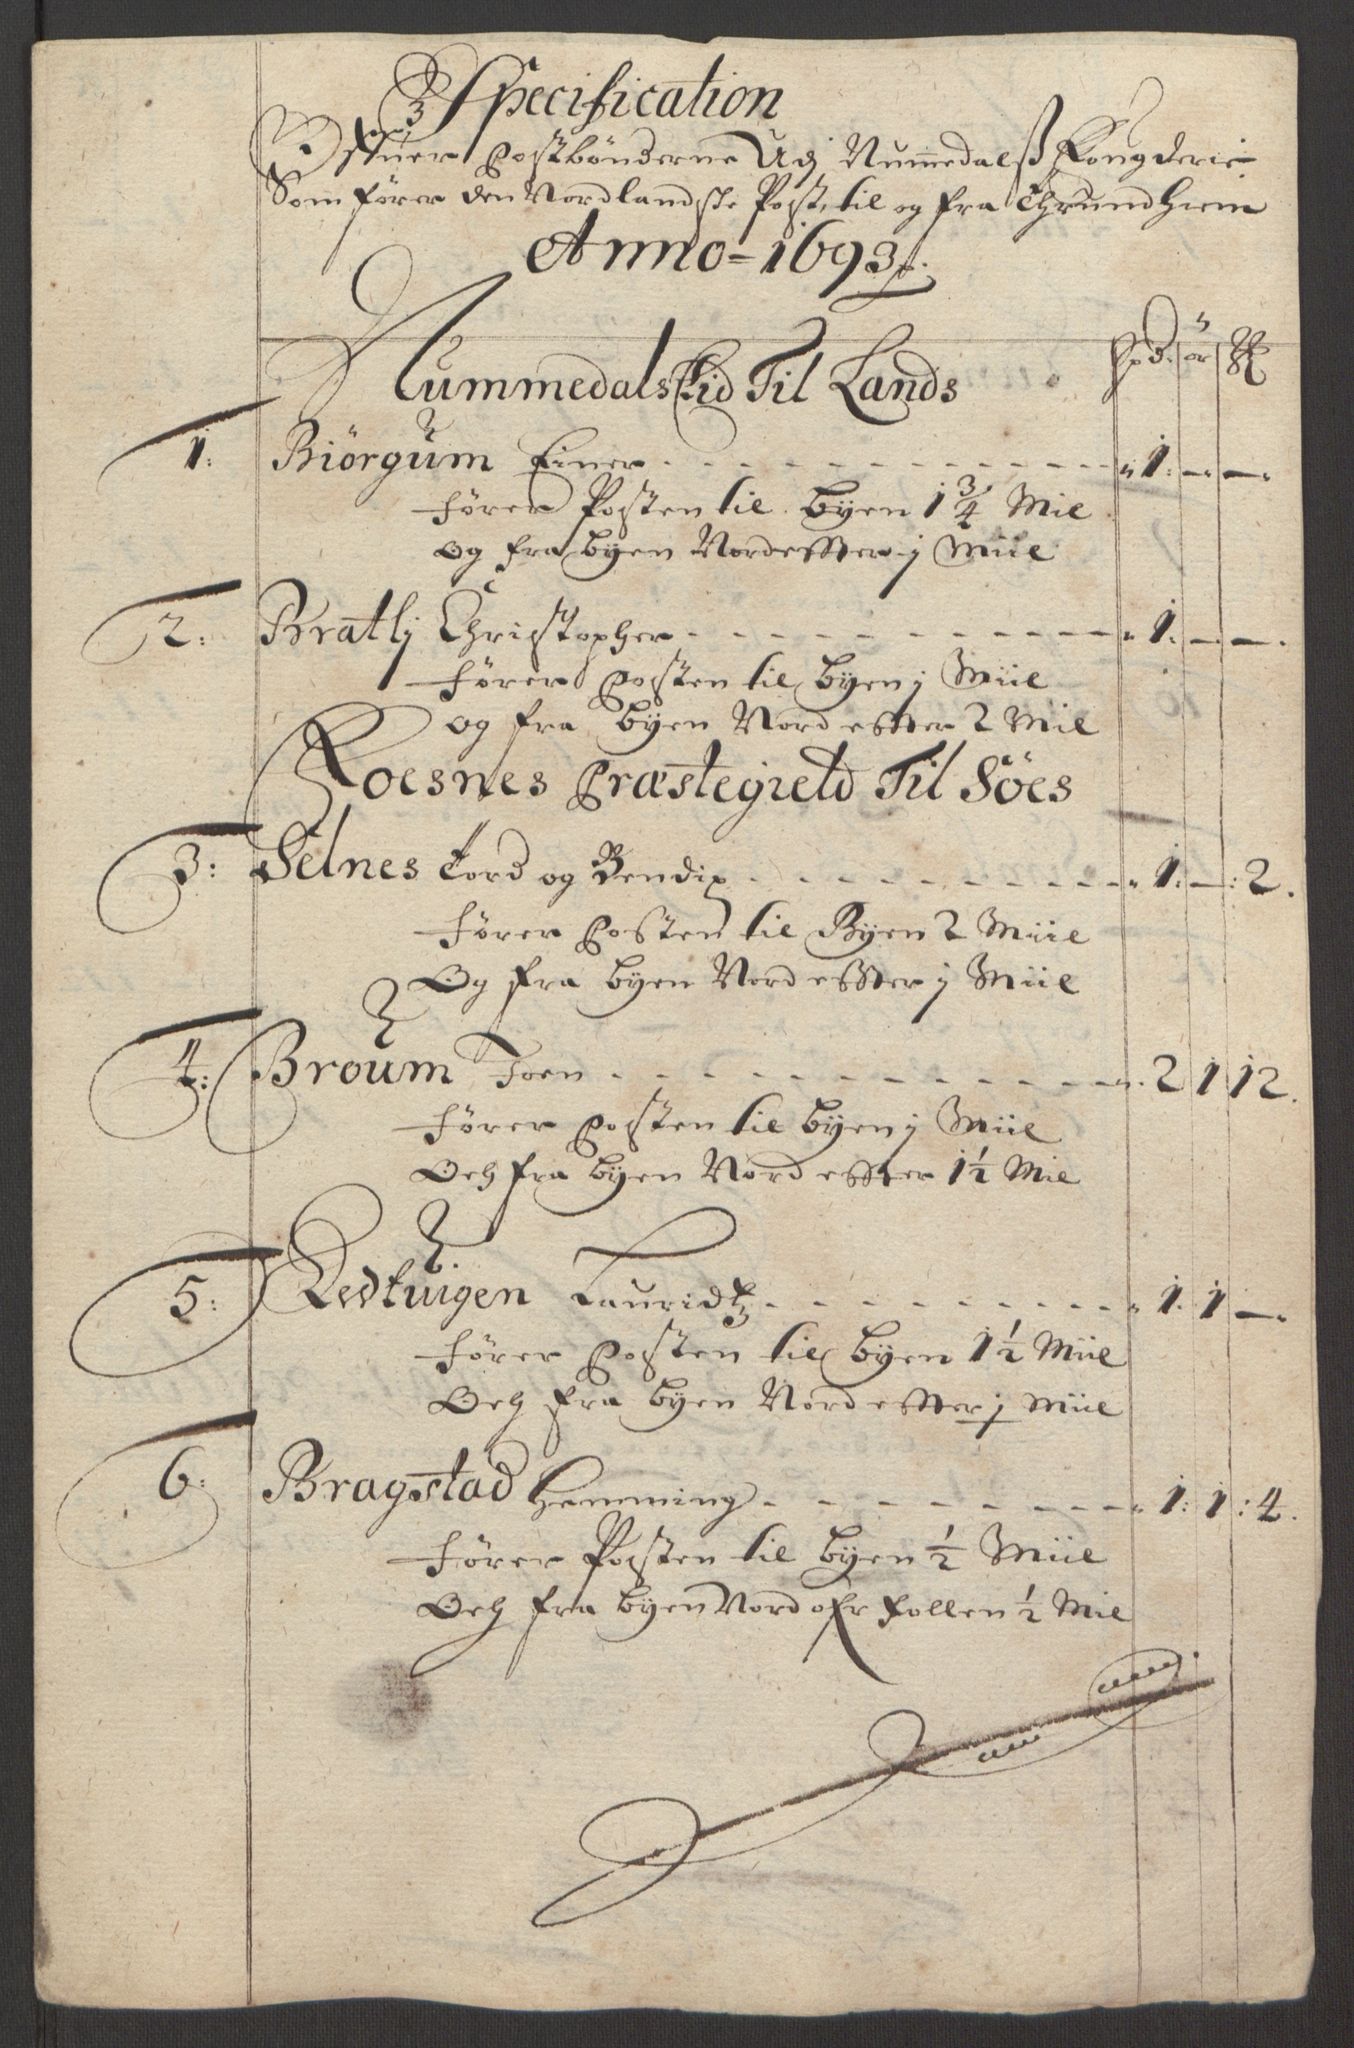 Specification
Ofuer Postbønderne Udj Nummedalß Fougderie
Som fører den Nordlandske Post, til og fra Thrundhiem
Anno-1693
Nummedals Eid Til Lands
spd. ør
1: Biörgum Einer - - - 1: - -
fører Posten til byen 1 3/4 Mil
og fra byen Nordeffter j Miil
2: Bratlj Christopher - - - 1: - -
fører Posten til byen j Miil
og fra byen Nord effter 2 Mil
Foesnes Præstegield Til Söes
3: Selnes Tord og Bendix - - - 1: - : 2.
fører Posten til Byen 2 Miil
Og fra byen Nord effter j Miil
4: Broum Joen - - - 2 1 12.
fører Posten til byen j Miil
Och fra byen Nord effter 1 1/2 Mil
5: Redtuigen Lauridtz - - - 1. 1 -
fører Posten til byen 1 1/2 Miil
Och fra byen Nord effter j Miil
6: Bragstad Hemming - - - 1: 1: 4.
fører Posten til byen 1/2 Miil
Och fra byen Nord ofr Follen 1/2 Mil